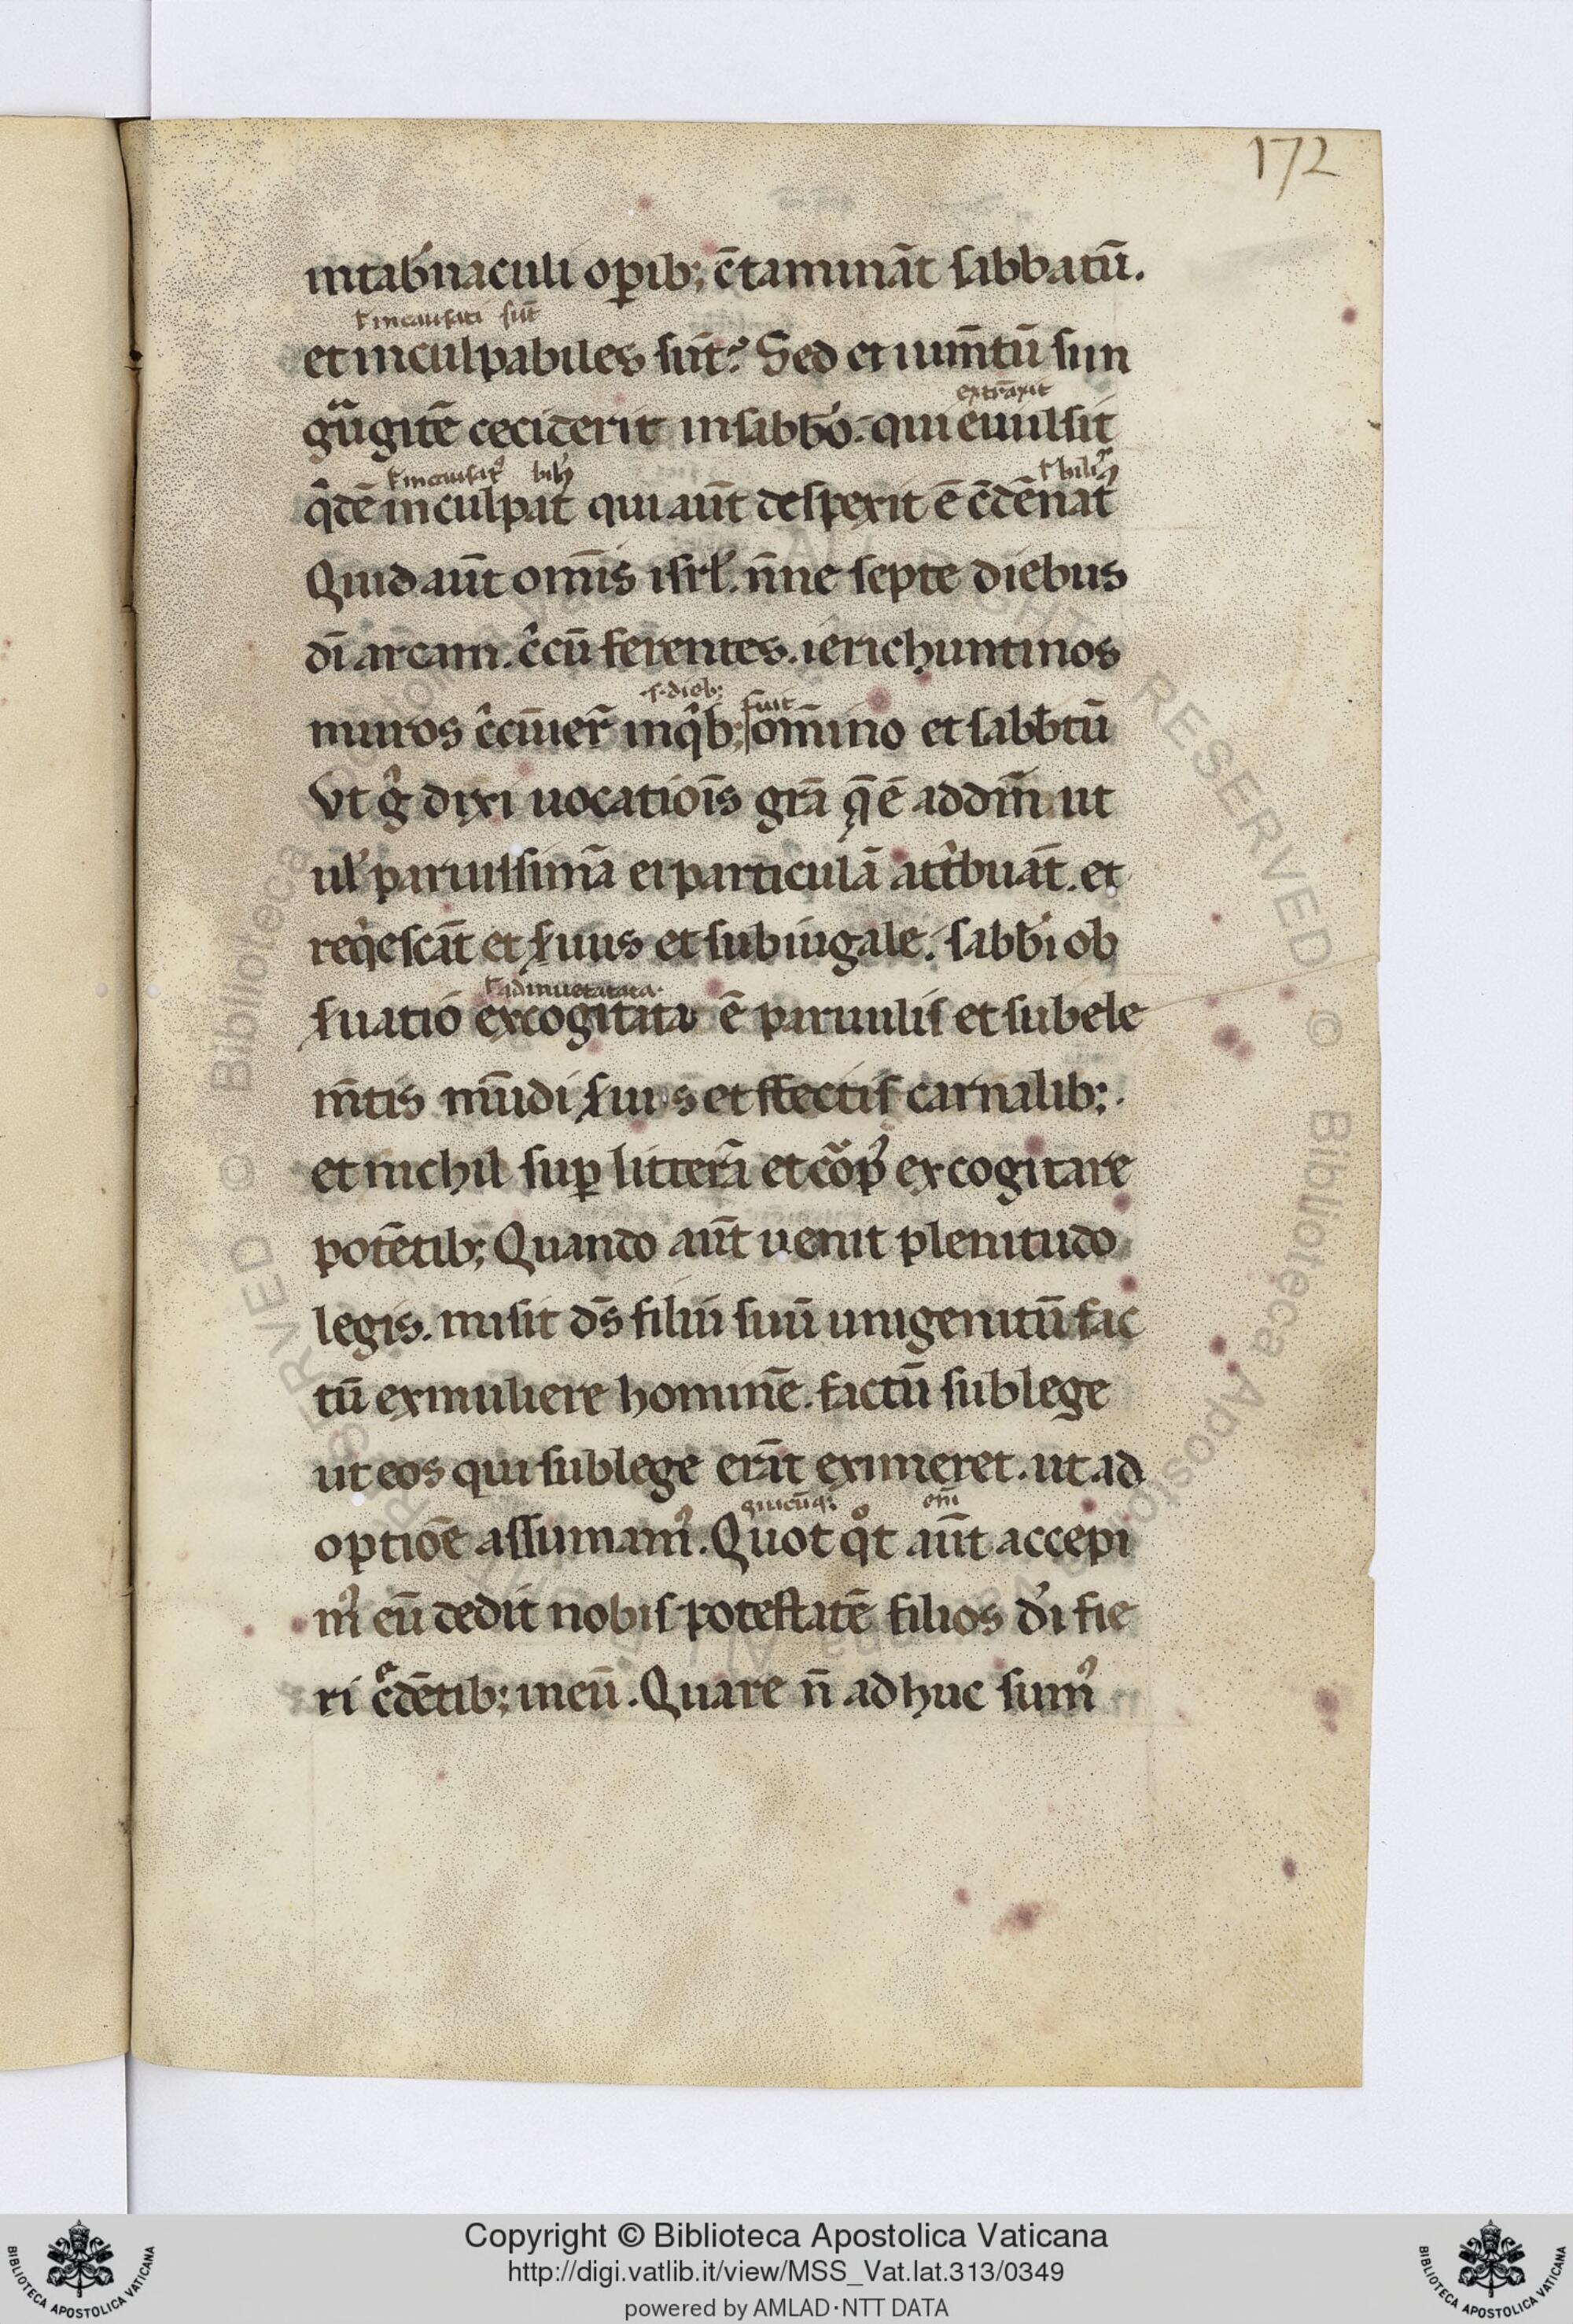 172
intab̄naculi op̄ib; c̄tamināt sabbatū.
ł incausati sūt
et inculpabiles sūt? Sed et ium̄tū sun
extrāxit
gͣugitē ceciderit in sabb̄o. qui euulsit
q̇dē inculpat qui aūt despexit ē c̄dēnat
Quid aūt om̄is isrł. n̄ne septe diebus
dī arcam. c̄cū ferentes. ierichuntinos
.s. dieb;
fuit
muros c̄cūier̄ inq̇b; om̄ino et sabb̄tū
Vt g̊ dixi uocatiōis grā q̄ ē addm̄ ut
uł paruissimā ei particulā attͥbuāt. et
reqͥescāt et s̄uus et subiugale. sabb̄i ob
ł adinuetata ta.
s̄uatiō excogitata ē paruulis et sub ele
m̄tis mūdi s̄uis et affectis carnalib;.
et nichil sup̱ litterā et cōp̄ excogitare
potētib; Quando aūt uenit plenitudo
legis. misit d̄s filiū suū unigenitū fac
tū ex muliere hominē. factū sub lege
ut eos qui sub lege erāt eximeret. ut ad
quicūq;
em̄
optiōe assumamꝰ. Quot qͦt aūt accepi
mꝰ eū dedit nobis potestatē filios d̄i fie
ri cͤdētib; in eū. Quare n̄ adhuc sumꝰ
© Biblioteca Apostolica Vaticana ALL RIGHTS RESERVED © Biblioteca Apostolica Vaticana ALL RIGHTS RESERVED
BIBLIOTECA APOSTOLICA VATICANA
Copyright © Biblioteca Apostolica Vaticana
http://digi.vatlib.it/view/MSS_Vat.lat.313/0349
powered by AMLAD·NTT DATA
BIBLIOTECA APOSTOLICA VATICANA